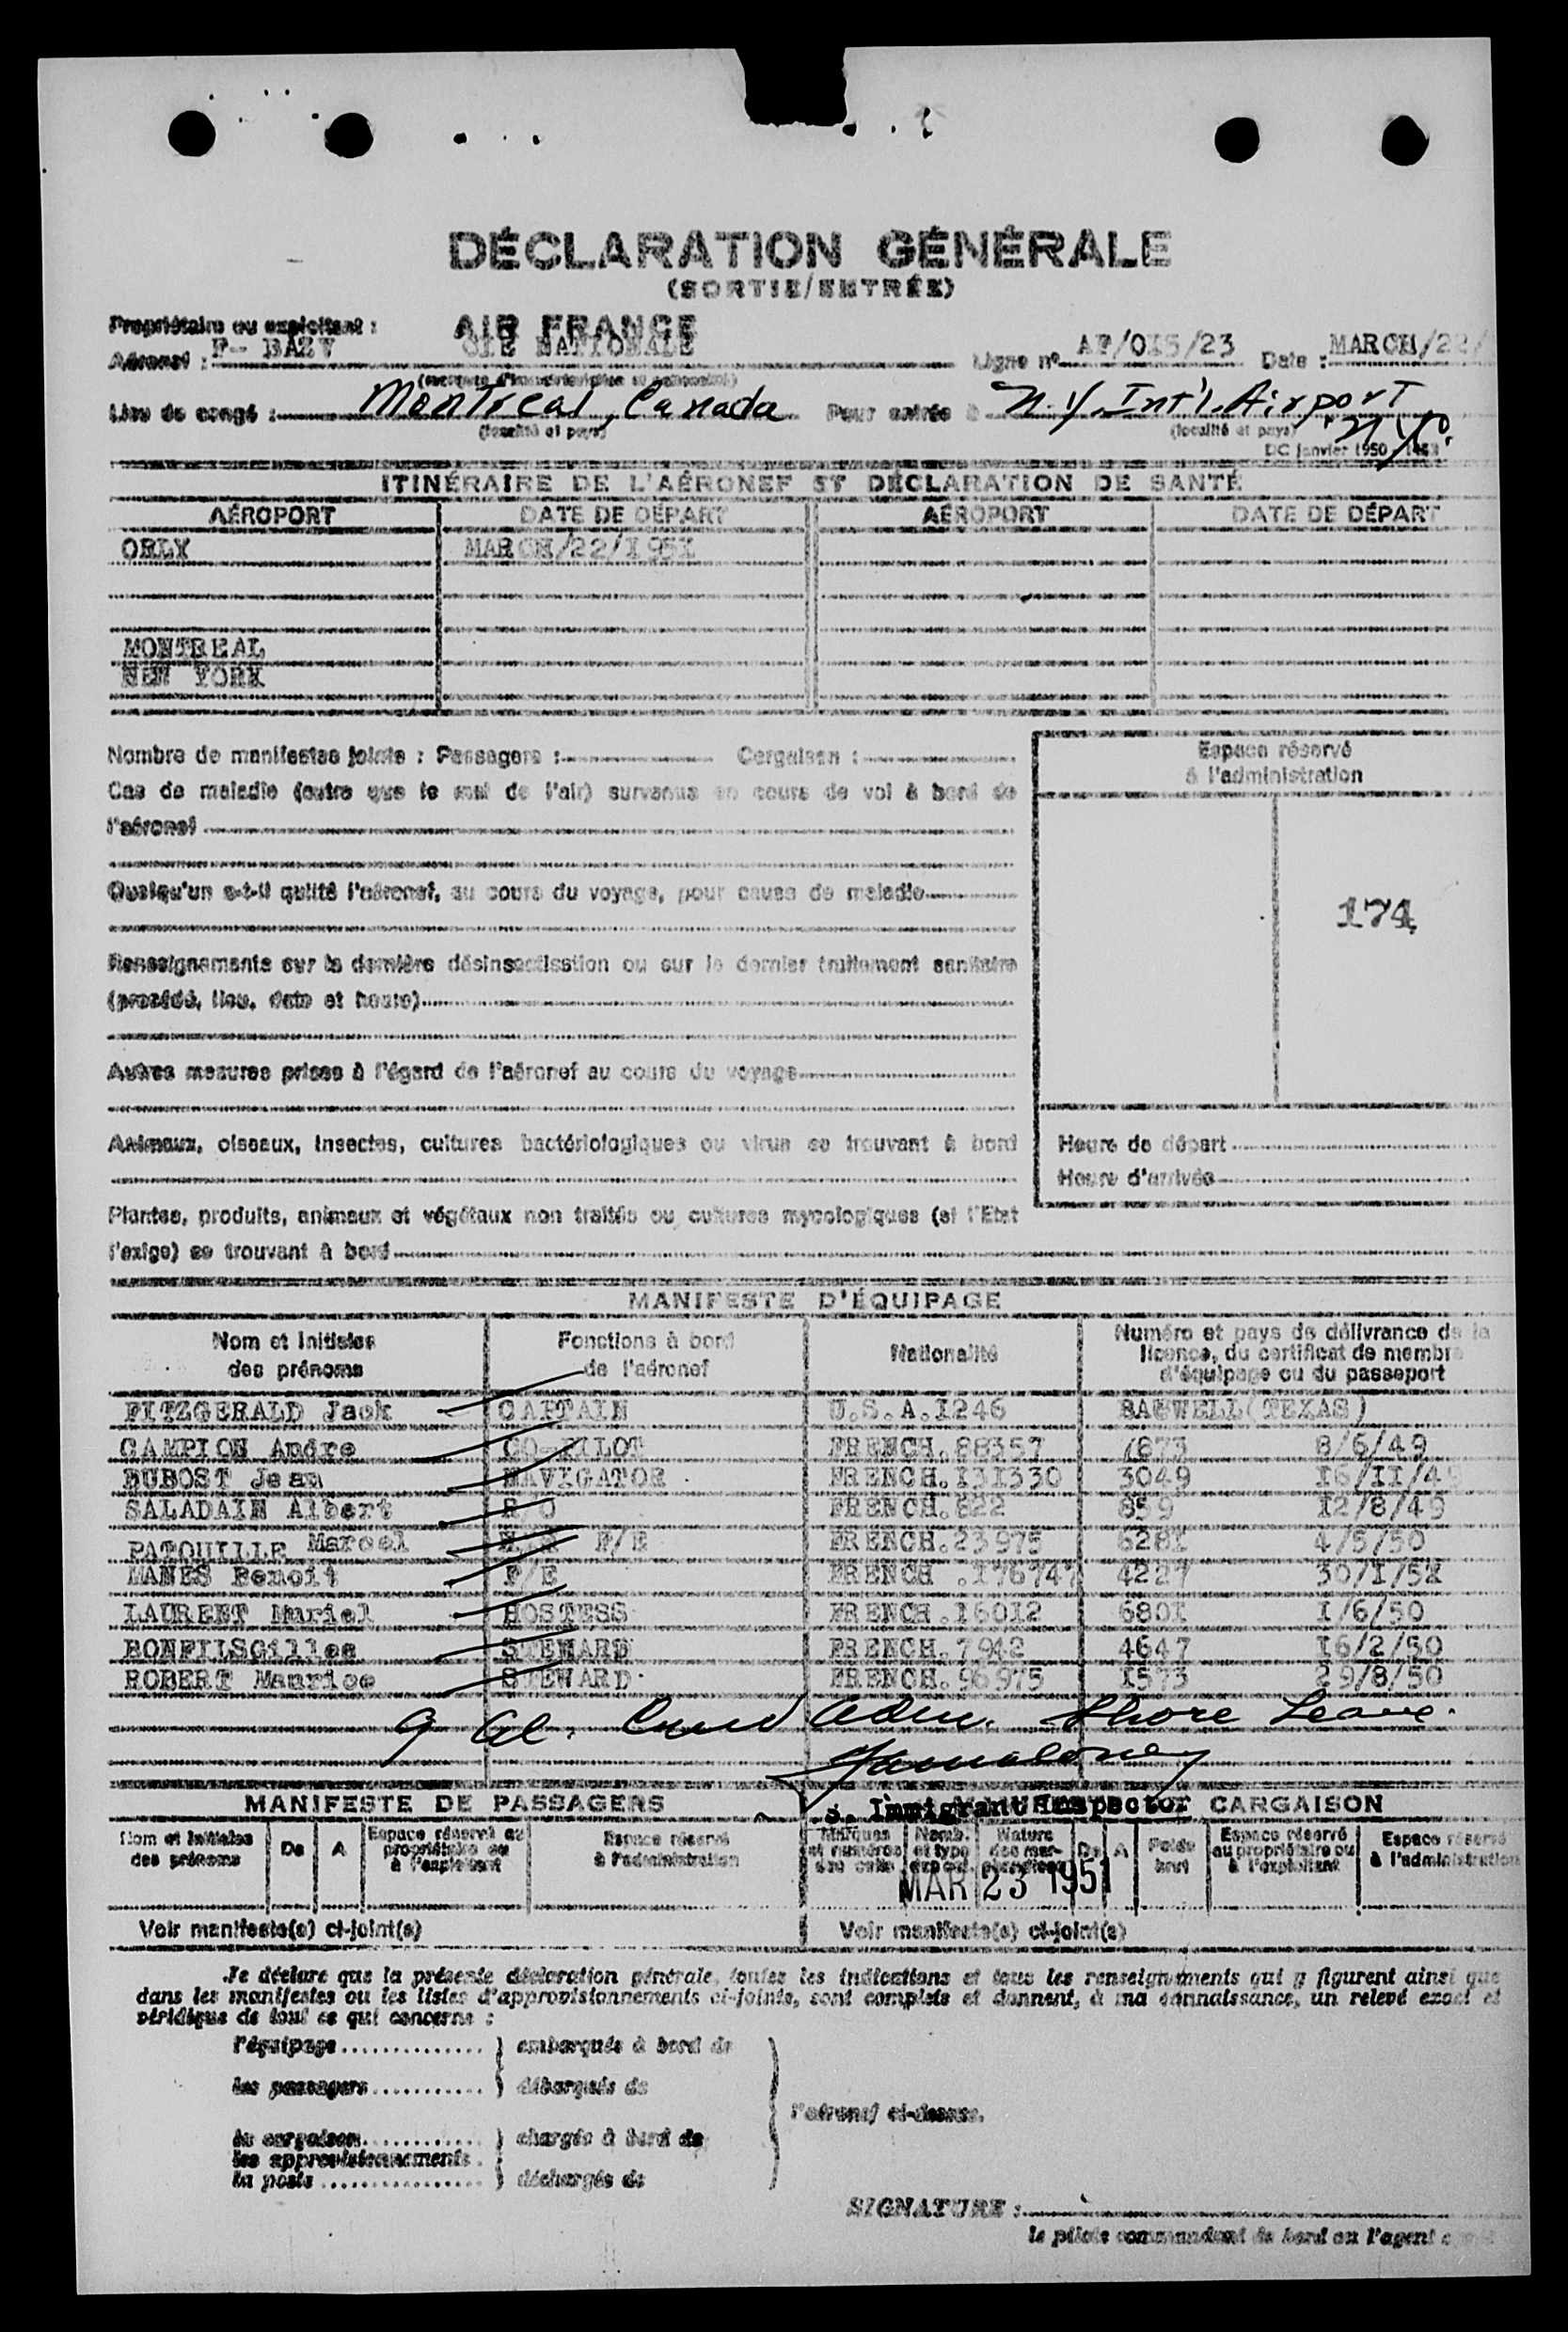 DÉCLARATION GÉNÉRALE
(SORTIE/ENTRÉE)
Propriétaire ou exploitant : AIR FRANCE
CIE NATIONALE
Aéronef : F- BAZV Ligne nº AF/0I5/23 Date : MARCH/22/
(marques d'immatriculation et nationalité)
Lieu de congé : Montreal, Canada Pour entrée à N.Y. Int'l. Airport
(localité et pays) (localité et pays) N.Y.
DC janvier 1950
ITINÉRAIRE DE L'AÉRONEF ET DÉCLARATION DE SANTÉ
AÉROPORT DATE DE DÉPART AÉROPORT DATE DE DÉPART
ORLY MARCH/22/I95I
MONTREAL
NEW YORK
Nombre de manifestes joints : Passagers : Cargaison :
Espace réservé
à l'administration
Cas de maladie (autre que le mal de l'air) survenus en cours de vol à bord de
l'aéronef
Quelqu'un a-t-il quitté l'aéronef, au cours du voyage, pour cause de maladie
174
Renseignements sur la dernière désinsectisation ou sur le dernier traitement sanitaire
(procédé, lieu, date et heure)
Autres mesures prises à l'égard de l'aéronef au cours du voyage
Animaux, oiseaux, insectes, cultures bactériologiques ou virus se trouvant à bord
Heure de départ
Heure d'arrivée
Plantes, produits, animaux et végétaux non traités ou cultures mycologiques (si l'Etat
l'exige) se trouvant à bord
MANIFESTE D'ÉQUIPAGE
Nom et initiales des prénoms Fonctions à bord de l'aéronef Nationalité Numéro et pays de délivrance de la licence, du certificat de membre d'équipage ou du passeport
FITZGERALD Jack CAPTAIN U.S.A.I246 BAGWELL(TEXAS)
CAMPION Andre CO-PILOT FRENCH.88357 7873 8/6/49
DUBOST Jean NAVIGATOR FRENCH.I3I330 3049 I6/II/49
SALADAIN Albert R/O FRENCH.822 859 I2/8/49
PATOUILLE Marcel F/E FRENCH.23975 628I 4/5/50
MANES Benoit F/E FRENCH .I76747 4227 30/I/5I
LAURENT Muriel HOSTESS FRENCH.I6012 680I I/6/50
BONFILSGilles STEWARD FRENCH.7942 4647 I6/2/50
ROBERT Maurice STEWARD FRENCH.96975 I573 29/8/50
9 al. Adm. Shore Leave.
MANIFESTE DE PASSAGERS CARGAISON
Immigrant Inspector
Nom et initiales des prénoms De A Espace réservé au propriétaire ou à l'exploitant Espace réservé à l'administration
Marques et numéros des colis Nomb. et type Nature des mar- De A Poids brut Espace réservé au propriétaire ou à l'exploitant Espace réservé à l'administration
MAR 23 1951
Voir manifeste(s) ci-joint(s) Voir manifeste(s) ci-joint(s)
Je déclare que la présente déclaration générale, toutes les indications et tous les renseignements qui y figurent ainsi que
dans les manifestes ou les listes d'approvisionnements ci-joints, sont complets et donnent, à ma connaissance, un relevé exact et
véridique de tout ce qui concerne :
l'équipage embarqués à bord de
les passagers débarqués de
l'aéronef ci-dessus.
la cargaison chargés à bord de
les approvisionnements
la poste déchargés de
SIGNATURE :
le pilote commandant de bord ou l'agent